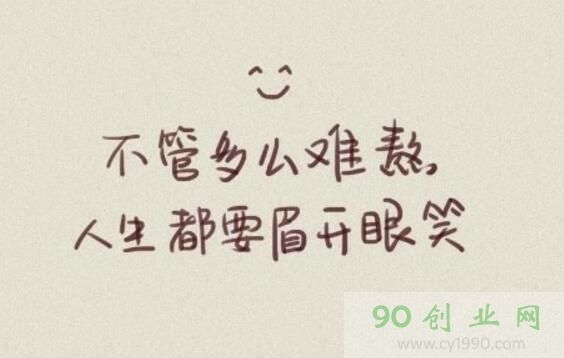 不管多么难熬,
人生都要眉开眼笑
90创业网
www.cy1990.com